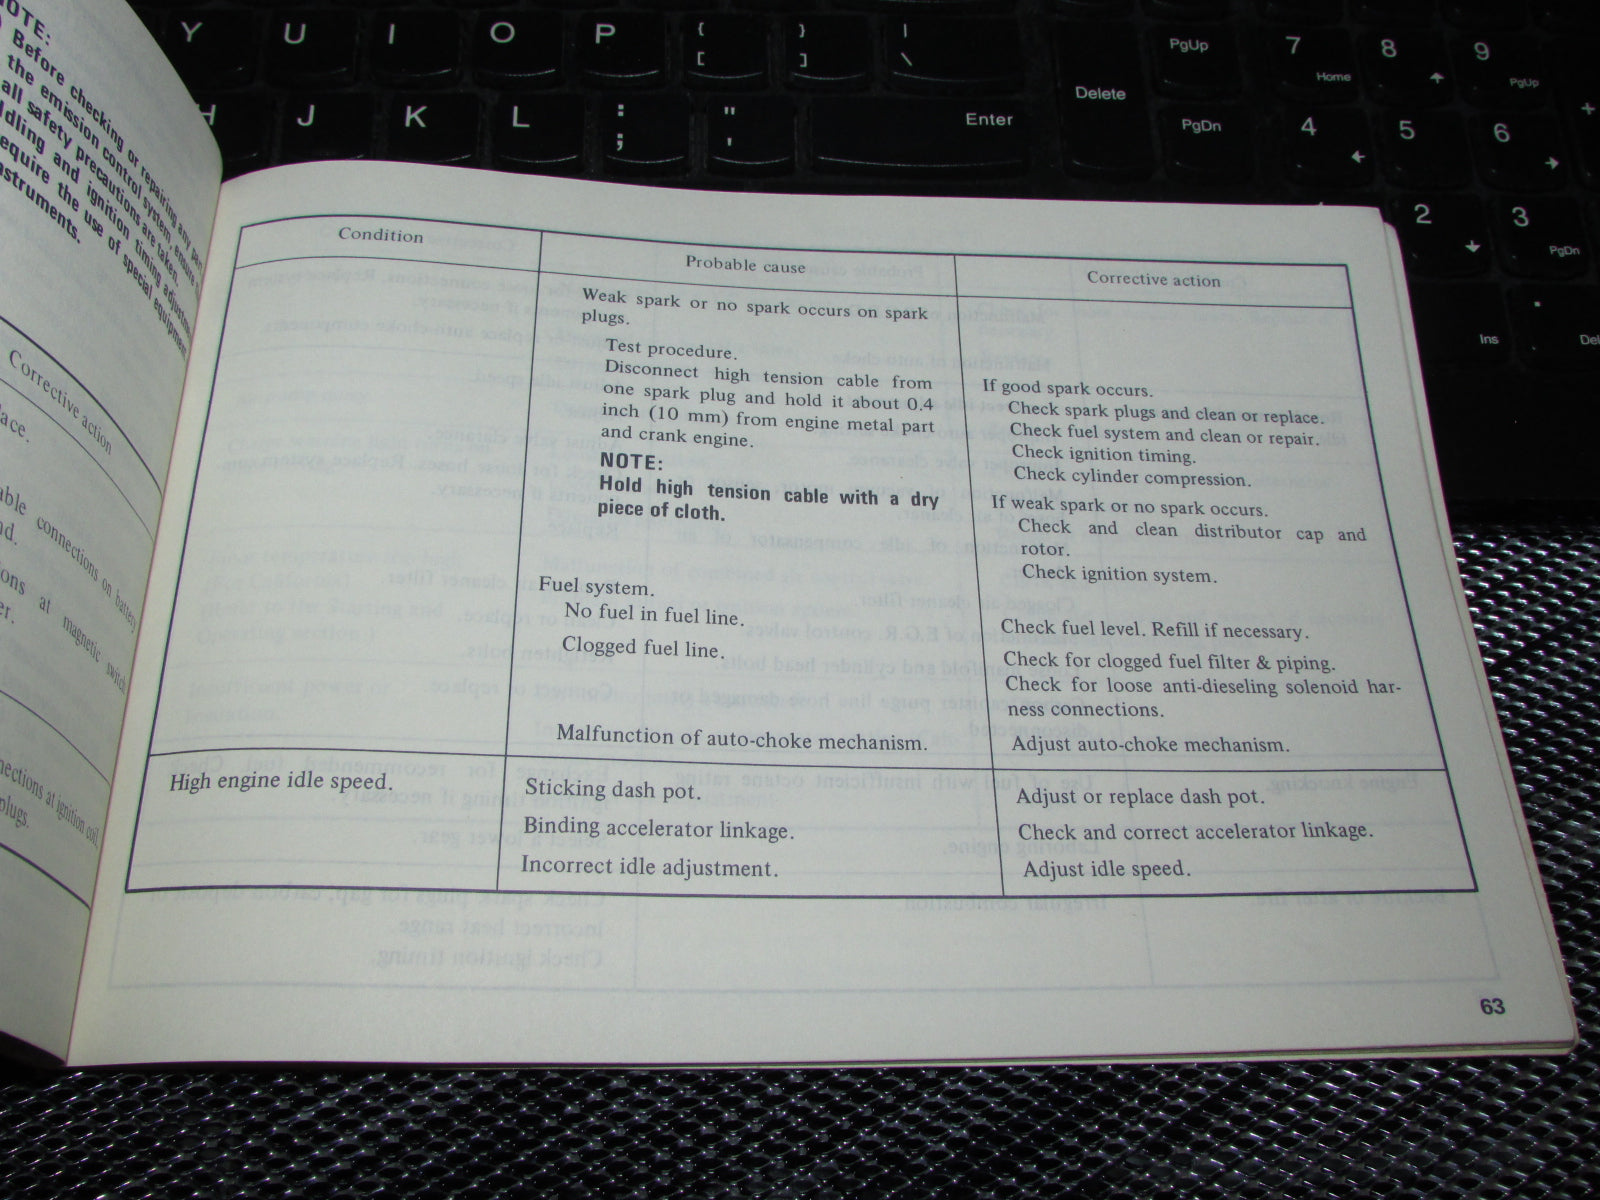 Y U I O P { [ } ] | \ PgUp 7 Home 8 9 PgUp
H J K L : ; " ' Enter Delete PgDn 4 5 6 +
2 3 PgDn
Ins . Del
NOTE:
Before checking or repairing any part
the emission control system, ensure
all safety precautions are taken.
Idling and ignition timing adjustment
require the use of special equipment
instruments.
Corrective action
connections on battery
at magnetic switch
connections at ignition coil
plugs.
Condition Probable cause Corrective action
Weak spark or no spark occurs on spark
plugs.
Test procedure.
Disconnect high tension cable from
one spark plug and hold it about 0.4
inch (10 mm) from engine metal part
and crank engine.
NOTE:
Hold high tension cable with a dry
piece of cloth.
If good spark occurs.
Check spark plugs and clean or replace.
Check fuel system and clean or repair.
Check ignition timing.
Check cylinder compression.
If weak spark or no spark occurs.
Check and clean distributor cap and
rotor.
Check ignition system.
Fuel system.
No fuel in fuel line. Check fuel level. Refill if necessary.
Clogged fuel line. Check for clogged fuel filter & piping.
Check for loose anti-dieseling solenoid har-
ness connections.
Malfunction of auto-choke mechanism. Adjust auto-choke mechanism.
High engine idle speed. Sticking dash pot. Adjust or replace dash pot.
Binding accelerator linkage. Check and correct accelerator linkage.
Incorrect idle adjustment. Adjust idle speed.
63